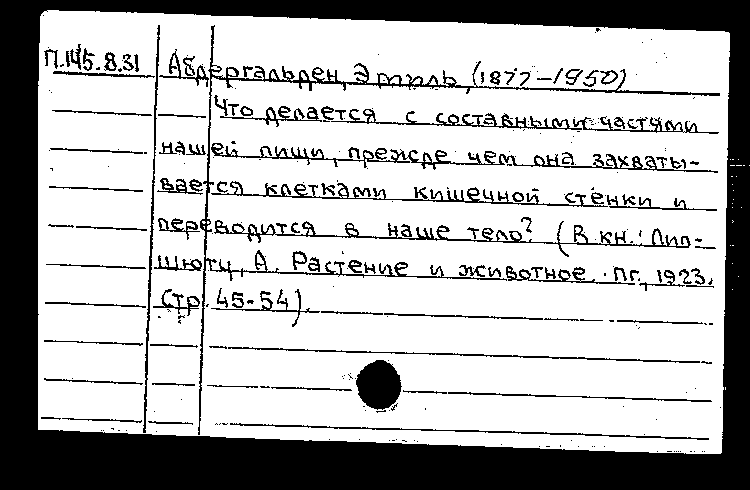 П.145.8.31 Абдергальден, Эмиль, (1877-1950)
Что делается с составными частями
нашей пищи, прежде чем она захваты-
вается клетками кишечной стенки и
переводится в наше тело? (В кн.: Лип-
шютц, А. Растение и животное. Пг., 1923.
Стр. 45-54).